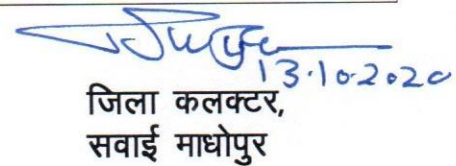 13.10.2020
जिला कलक्टर,
सवाई माधोपुर